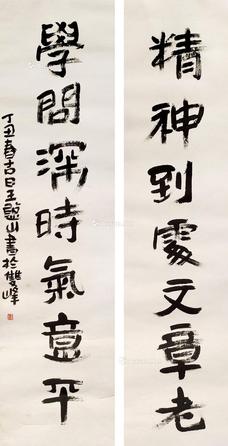 精神到處文章老
學問深時氣意平
丁丑春吉日王憨山書於雙峰